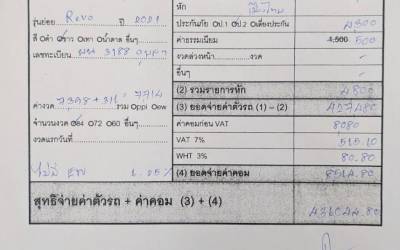 หัก เมืองไทย
รุ่นย่อย Revo ปี 2021
ประกันภัย ป.1 ป.2 เสี่ยงประกัน 4,300
สี ดำ ขาว เทา น้ำตาล อื่นๆ
ค่าธรรมเนียม 1,500 500
เลขทะเบียน ผน 3988
งวดล่วงหน้า งวด -
อื่นๆ -
(2) รวมรายการหัก 4800
ค่างวด 7398 + 311 = 7714 รวม ppi ew
(3) ยอดจ่ายค่าตัวรถ (1) – (2)
จำนวนงวด 84 72 60 อื่นๆ
ค่าคอมก่อน VAT 8080
งวดแรกวันที่
VAT 7% 565.10
WHT 3% 80.80
ไม่มี EW
(4) ยอดจ่ายค่าคอม 8564.80
สุทธิจ่ายค่าตัวรถ + ค่าคอม (3) + (4)